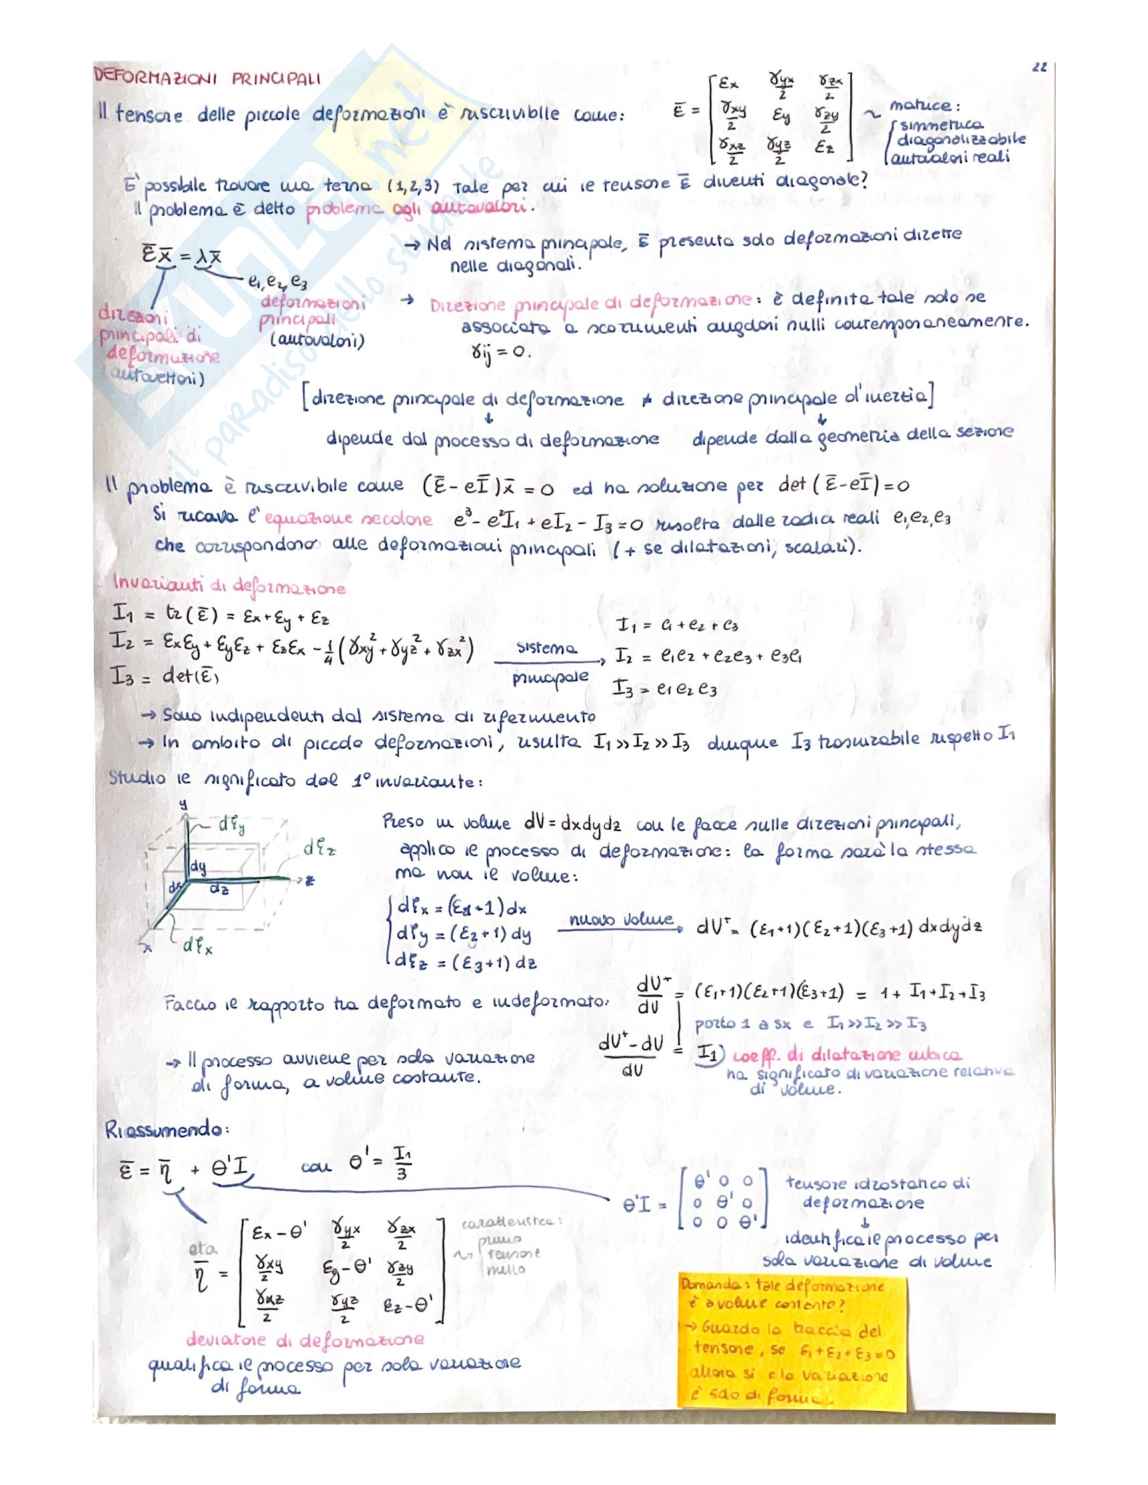 22
DEFORMAZIONI PRINCIPALI
Il tensore delle piccole deformazioni è riscrivibile come: Ē = [εx γyx/2 γzx/2; γxy/2 εy γzy/2; γxz/2 γyz/2 εz] ~ matrice:
simmetrica
diagonalizzabile
autovalori reali
È possibile trovare una terna (1,2,3) tale per cui il tensore Ē diventi diagonale?
Il problema è detto problema agli autovalori.
Ē x̄ = λx̄
e1, e2, e3
direzioni principali di deformazione (autovettori)
deformazioni principali (autovalori)
→ Nel sistema principale, ε̄ presenta solo deformazioni dirette
nelle diagonali.
→ Direzione principale di deformazione: è definita tale solo se
associata a scorrimenti angolari nulli contemporaneamente.
γij = 0.
[direzione principale di deformazione ≠ direzione principale d'inerzia]
↓ ↓
dipende dal processo di deformazione dipende dalla geometria della sezione
Il problema è riscrivibile come (Ē - eĪ)x̄ = 0 ed ha soluzione per det(Ē - eĪ) = 0
Si ricava l'equazione secolare e³ - e²I1 + eI2 - I3 = 0 risolta dalle radici reali e1, e2, e3
che corrispondono alle deformazioni principali (+ se dilatazioni, scalari).
Invarianti di deformazione
I1 = tr(ε̄) = εx + εy + εz
I2 = εxεy + εyεz + εzεx - 1/4(γxy² + γyz² + γzx²)
I3 = det(ε̄)
sistema principale →
I1 = e1 + e2 + e3
I2 = e1e2 + e2e3 + e3e1
I3 = e1e2e3
→ Sono indipendenti dal sistema di riferimento
→ In ambito di piccole deformazioni, risulta I1 >> I2 >> I3 dunque I3 trascurabile rispetto I1
Studio il significato del 1° invariante:
y
dξy
dξz
dy
dx dz z
x dξx
Preso un volume dV = dxdydz con le facce sulle direzioni principali,
applico il processo di deformazione: la forma sarà la stessa
ma non il volume:
dξx = (ε1+1)dx
dξy = (ε2+1)dy
dξz = (ε3+1)dz
nuovo volume → dV⁺ = (ε1+1)(ε2+1)(ε3+1) dxdydz
Faccio il rapporto tra deformato e indeformato. dV⁺/dV = (ε1+1)(ε2+1)(ε3+1) = 1 + I1 + I2 + I3
porto 1 a sx e I1 >> I2 >> I3
(dV⁺ - dV)/dV = I1) coeff. di dilatazione cubica
ha significato di variazione relativa
di volume.
→ Il processo avviene per sola variazione
di forma, a volume costante.
Riassumendo:
ε̄ = η̄ + θ'I con θ' = I1/3
θ'I = [θ' 0 0; 0 θ' 0; 0 0 θ'] tensore idrostatico di
deformazione
↓
identifica il processo per
sola variazione di volume
eta
η̄ = [εx-θ' γyx/2 γzx/2; γxy/2 εy-θ' γzy/2; γxz/2 γyz/2 εz-θ']
caratteristica:
primo
tensore
nullo
deviatore di deformazione
qualifica il processo per sola variazione
di forma
Domanda: tale deformazione
è a volume costante?
→ Guardo la traccia del
tensore, se ε1+ε2+ε3=0
allora si e la variazione
è solo di forma.
SKUOLA.net
il paradiso dello studente